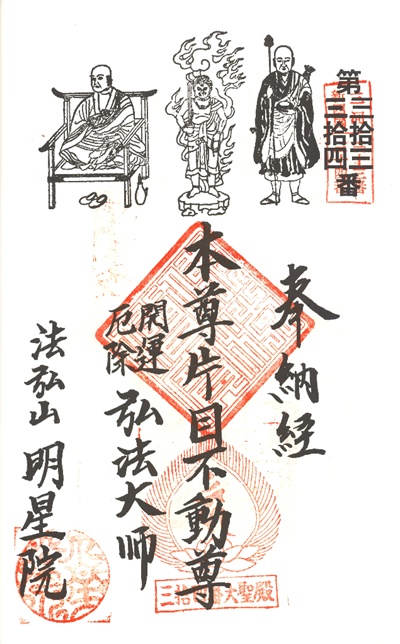 第三拾三三拾四番
奉納経
本尊片目不動尊
開運厄除弘法大師
法弘山明星院
三拾三番大聖殿